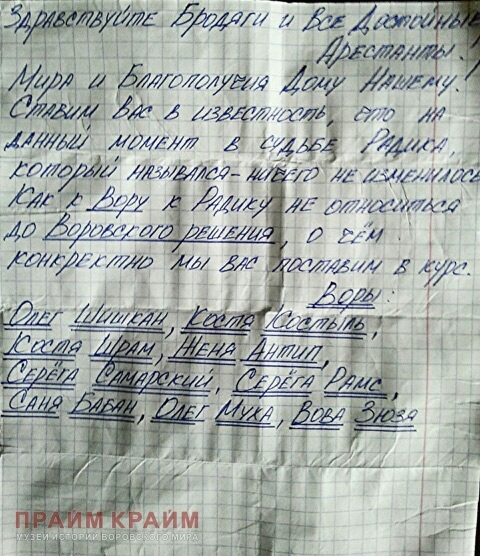 Здравствуйте Бродяги и Все Достойные
Арестанты!
Мира и Благополучия Дому Нашему.
Ставим Вас в известность, что на
данный момент в судьбе Радика,
который назывался-ничего не изменилось
Как к Вору к Радику не относиться
до Воровского решения, о чём
конкректно мы вас поставим в курс.
Воры:
Олег Шишкан, Костя Костыль,
Костя Шрам, Женя Антип,
Серёга Самарский, Серёга Рамс,
Саня Бабан, Олег Муха, Вова Зюзя
ПРАЙМ КРАЙМ
МУЗЕЙ ИСТОРИИ ВОРОВСКОГО МИРА